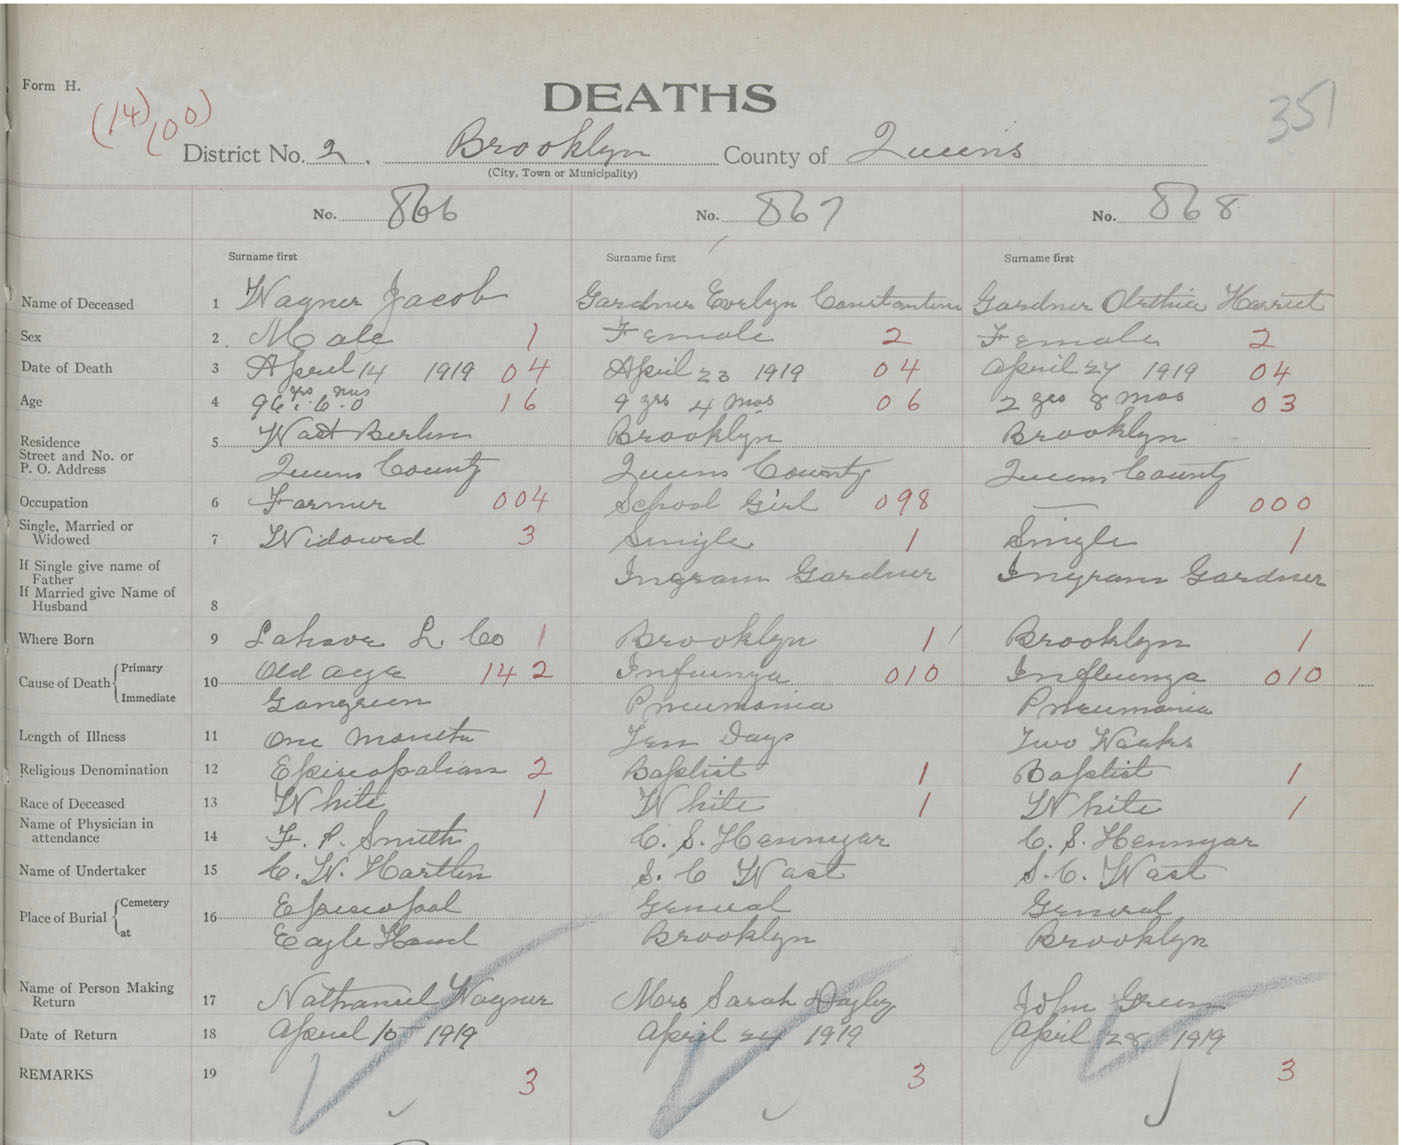 Form H.
DEATHS
351
(14)
(00)
District No. 2. Brooklyn County of Queens
(City, Town or Municipality)
No. 866 No. 867 No. 868
Surname first Surname first Surname first
Name of Deceased 1 Wagner Jacob Gardner Evelyn Constantine Gardner Harriet
Sex 2. Male 1 Female 2 Female 2
Date of Death 3 April 14 1919 04 April 23 1919 04 April 27 1919 04
Age 4 96 yrs. 6 mns 0 16 9 yrs 4 mos 06 2 yrs 8 mos 03
Residence Street and No. or P. O. Address 5 West Berlin Brooklyn Brooklyn
Queens County Queens County Queens County
Occupation 6 Farmer 004 School Girl 098 — 000
Single, Married or Widowed 7 Widowed 3 Single 1 Single 1
If Single give name of Father Ingram Gardner Ingram Gardner
If Married give Name of Husband 8
Where Born 9 Lahave L. Co 1 Brooklyn 1 Brooklyn 1
Cause of Death Primary 10 Old age 142 Infuenza 010 Influenza 010
Immediate Gangreen Pneumonia Pneumonia
Length of Illness 11 One month Ten Days Two Weeks
Religious Denomination 12 Episcopalian 2 Baptist 1 Baptist 1
Race of Deceased 13 White 1 White 1 White 1
Name of Physician in attendance 14 F. P. Smith C. S. Hennigar C. S. Hennigar
Name of Undertaker 15 C. W. Hartlin S. C West S. C. West
Place of Burial Cemetery 16 Episcopal General General
at Eagle Head Brooklyn Brooklyn
Name of Person Making Return 17 Nathaniel Wagner Mrs Sarah John Green
Date of Return 18 April 15 1919 April 24 1919 April 28 1919
REMARKS 19 3 3 3